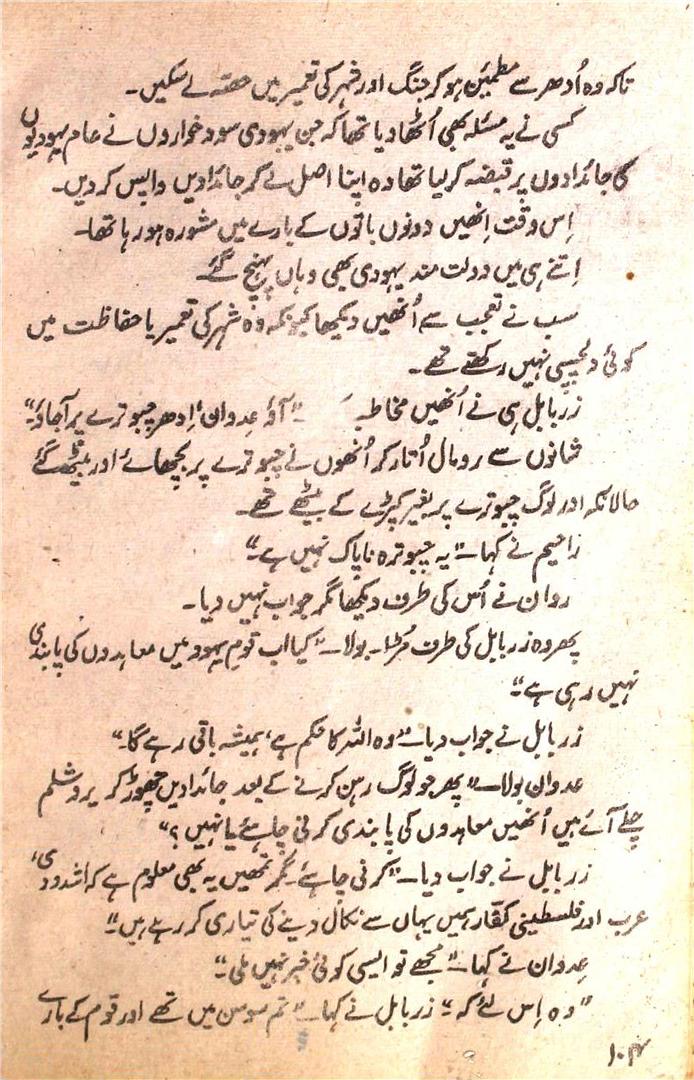 تاکہ وہ اُدھر سے مطمئن ہو کر جنگ اور شہر کی تعمیر میں حصّہ لے سکیں۔
کسی نے یہ مسئلہ بھی اُٹھا دیا تھا کہ جن یہودی سود خواروں نے عام یہودیوں
کی جائدادوں پر قبضہ کر لیا تھا وہ اپنا اصل لے کر جائدادیں واپس کر دیں۔
اِس وقت اِنھیں دونوں باتوں کے بارے میں مشورہ ہو رہا تھا۔
اِتنے ہی میں دولت مند یہودی بھی وہاں پہنچ گئے۔
سب نے تعجب سے اُنھیں دیکھا کیونکہ وہ شہر کی تعمیر یا حفاظت میں
کوئی دلچسپی نہیں رکھتے تھے۔
زربابل ہی نے اُنھیں مخاطب ۔ "آؤ عِدوان! اِدھر چبوترے پر آجاؤ۔"
شانوں سے رومال اُتار کر اُنھوں نے چبوترے پر بچھائے اور بیٹھ گئے
حالانکہ اور لوگ چبوترے پر بغیر کپڑے کے بیٹھے تھے۔
زاحیم نے کہا۔ "یہ چبوترہ ناپاک نہیں ہے۔"
روان نے اُس کی طرف دیکھا مگر جواب نہیں دیا۔
پھر وہ زربابل کی طرف مُڑا۔ بولا۔ "کیا اب قومِ یہود میں معاہدوں کی پابندی
نہیں رہی ہے"
زربابل نے جواب دیا۔ "وہ اللہ کا حکم ہے، ہمیشہ باقی رہے گا۔"
عدوان بولا۔ "پھر جو لوگ رہن کرنے کے بعد جائدادیں چھوڑ کر یروشلم
چلے آئے ہیں اُنھیں معاہدوں کی پابندی کرنی چاہئے یا نہیں؟"
زربابل نے جواب دیا۔ "کرنی چاہئے۔ مگر تمھیں یہ بھی معلوم ہے کہ اشدودی،
عرب اور فلسطینی کفّار ہمیں یہاں سے نکال دینے کی تیاری کر رہے ہیں۔"
عِدوان نے کہا۔ "مجھے تو ایسی کوئی خبر نہیں ملی۔"
"وہ اِس لئے کہ۔" زربابل نے کہا۔ "تم سوسن میں تھے اور قوم کے بارے
۱۰۴